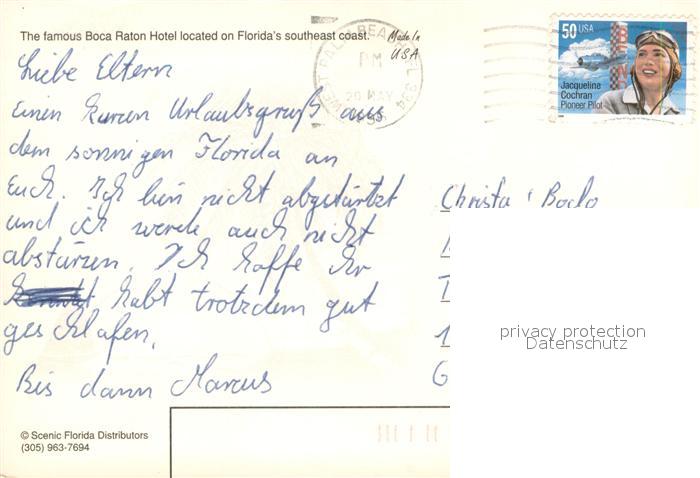 The famous Boca Raton Hotel located on Florida's southeast coast.
Made In
USA
WEST PALM BEACH, FL 334
PM
20 MAY
50 USA
Jacqueline
Cochran
Pioneer Pilot
Liebe Eltern
Einen kurzen Urlaubsgruß aus
dem sonnigen Florida an
Euch. Ich bin nicht abgstürtzt
und ich werde auch nicht
abstürzen. Ich hoffe Ihr
habt trotzdem gut
geschlafen.
Bis dann Marcus
Christa + Bodo
privacy protection
Datenschutz
© Scenic Florida Distributors
(305) 963-7694